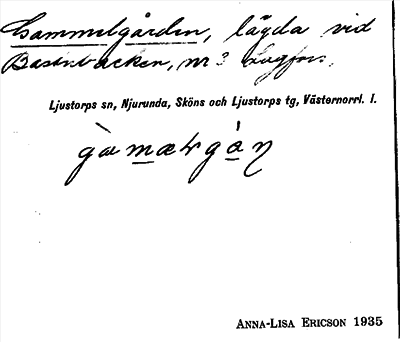 Gammelgården, lägda vid
Bastubacken, nr 3 Lagfors.
Ljustorps sn, Njurunda, Sköns och Ljustorps tg, Västernorrl. l.
ANNA-LISA ERICSON 1935